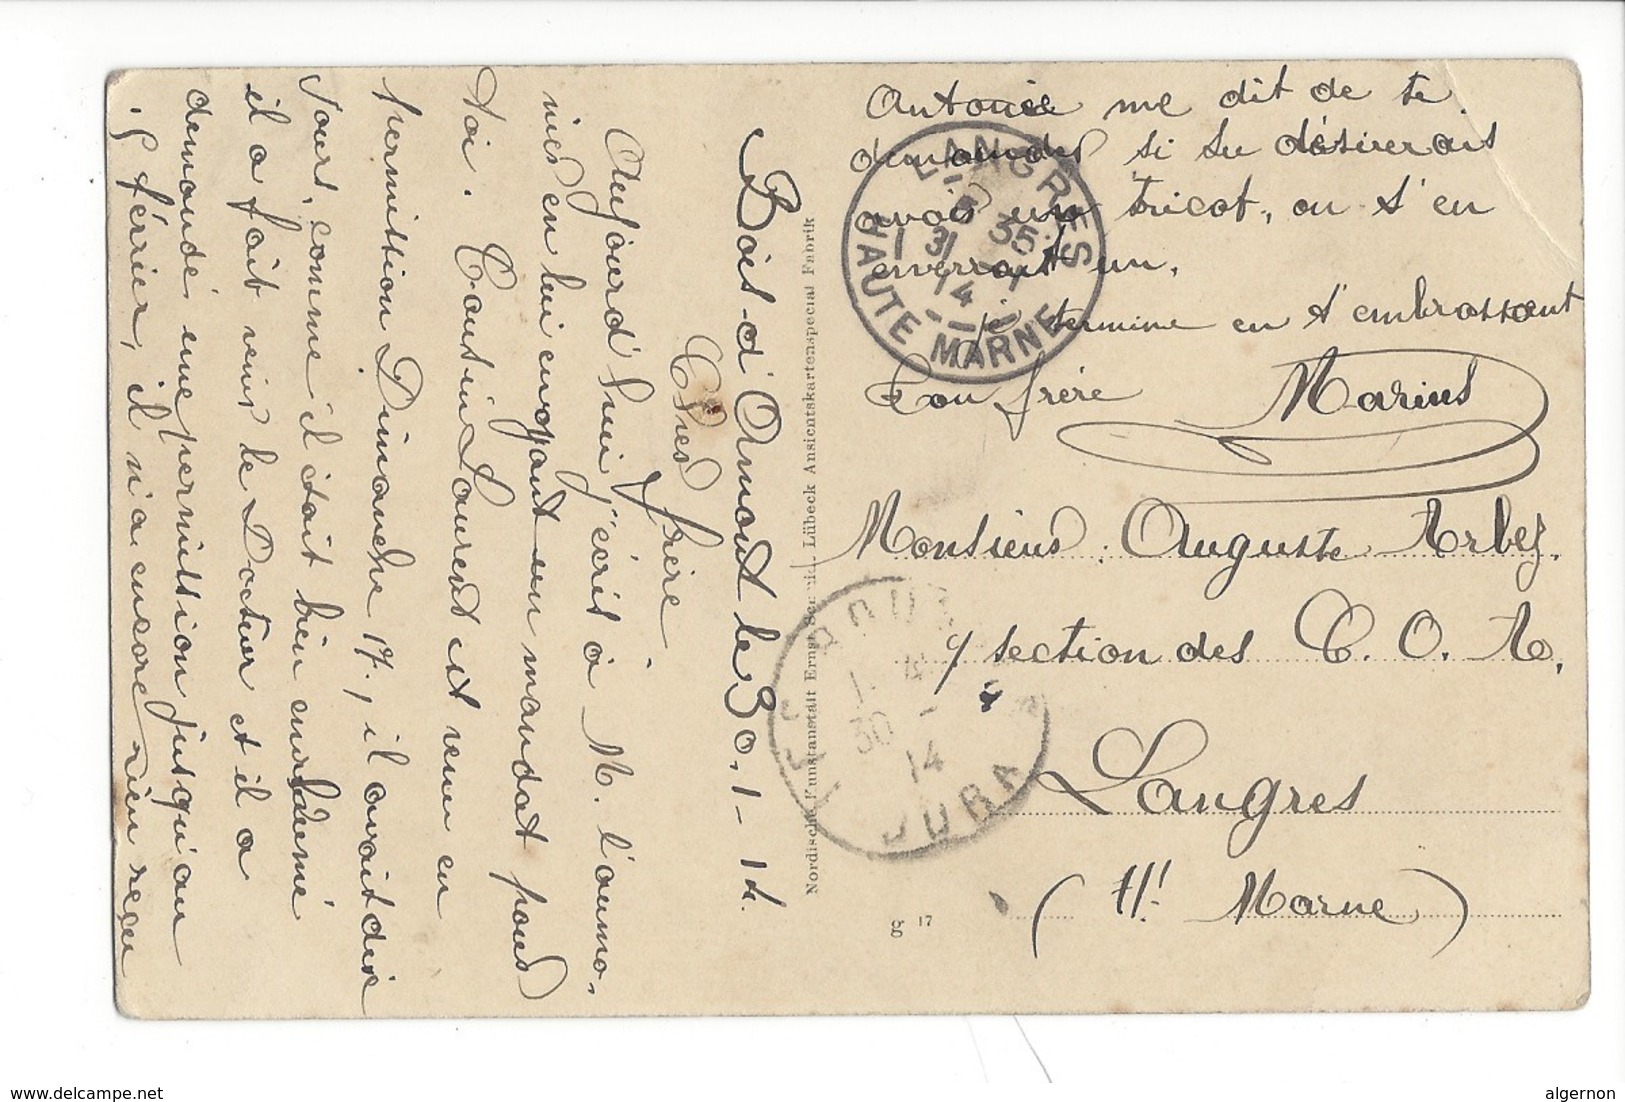 Bois-d'Amont le 30-1-14.
Cher frère
Aujourd'hui j'écrit à M. l'aumo-
nier en lui envoyant un mandat pour
toi. Cousin Laurent est venu en
permission Dimanche 17, il avait dix
jours, comme il était bien enrhumé
il a fait venir le Docteur et il a
demandé une permission jusqu'au
5 février, il n'a encore rien reçu
Antoine me dit de te
demander si tu désirerais
avoir un tricot, on t'en
enverrait un.
je termine en t'embrassant
Ton frère Marius
Monsieur Auguste Arbez.
7 section des C. O. A.
Langres
(Hte Marne)
LANGRES
5 35
31 - 1
14
HAUTE MARNE
LES ROUSSES
30 -
14
JURA
Nordische Kunstanstalt Ernst Lübeck Ansichtskartenspecial Fabrik
g 17
www.delcampe.net
algernon